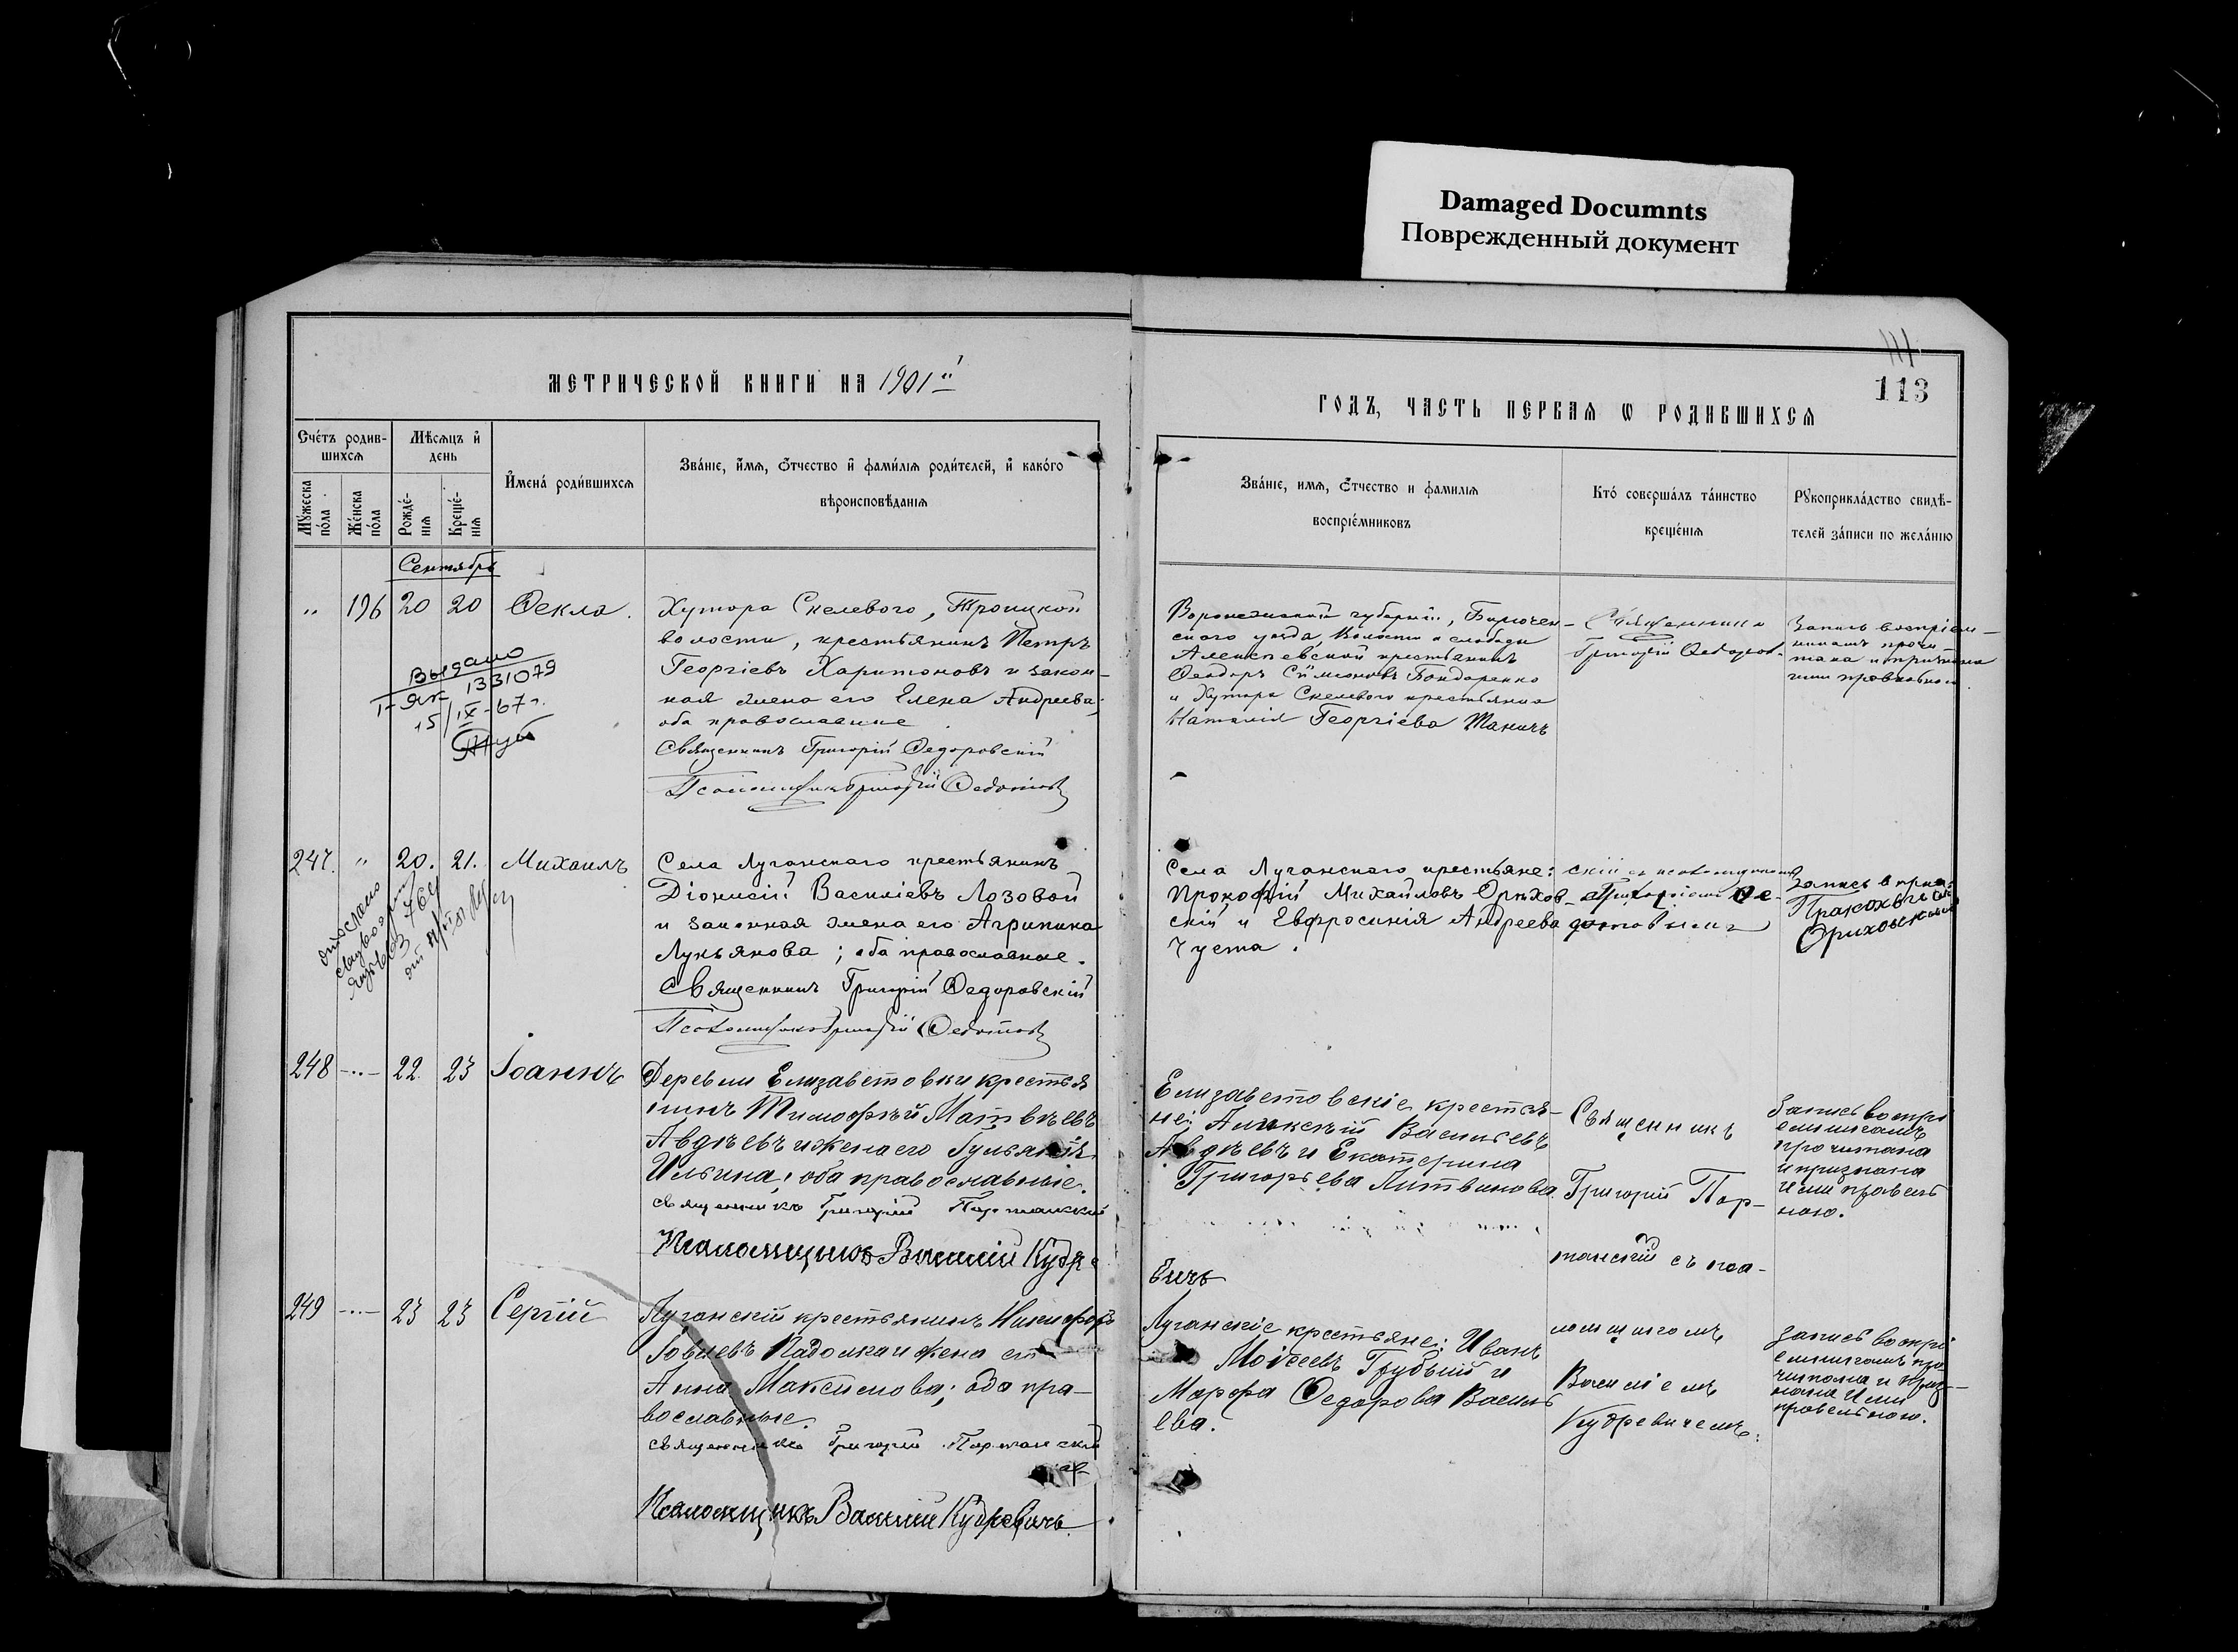 Damaged Documnts
Поврежденный документ
111
113
МЕТРИЧЕСКОЙ КНИГИ НА 1901й
ГОДЪ, ЧАСТЬ ПЕРВАЯ Ѡ РОДИВШИХСЯ
Счетъ родив-
шихся
Мѣсяцъ и
день
Мужеска
пола
Женска
пола
Рожде-
нія
Креще-
нія
Имена родившихся
Званіе, имя, отчество и фамилія родителей, и какого
вѣроисповѣданія
Званіе, имя, отчество и фамилія
воспріемниковъ
Кто совершалъ таинство
крещенія
Рукоприкладство свидѣ-
телей записи по желанію
Сентябрь
" 196 20 20 Ѳекла.
Хутора Скелевого, Троицкой
волости, крестьянинъ Петръ
Георгіевъ Харитоновъ и закон-
ная жена его Елена Андреева;
оба православные
Священникъ Григорій Ѳедоровскій
Псаломщикъ Григорій Ѳедотовъ
Выдано
I-ЯК 1331079
15/IX-67г.
Воронежской губерніи, Бирючен-
скаго уѣзда, Волости и слободы
Алексѣевской крестьянинъ
Ѳеодоръ Сѵмеоновъ Бондаренко
и Хутора Скелевого крестьянка
Наталія Георгіева
Священникъ
Григорій Ѳедоров-
Запись воспріем-
никамъ прочи-
тана и признана
ими правильной
247. " 20. 21. Михаилъ
Села Луганскаго крестьянинъ
Діонисій Василіевъ Лозовой
и законная жена его Агрипина
Лукьянова; оба православные.
Священникъ Григорій Ѳедоровскій
Псаломщикъ Григорій Ѳедотовъ
Села Луганскаго крестьяне:
Прокофій Михайловъ Орѣхов-
скій и Евфросинія Андреева
Чуета.
скій съ псаломщикомъ
Григоріемъ Ѳе-
дотовымъ
Ориховский
248 -"- 22 23 Іоаннъ
Деревни Елизаветовки крестья
нинъ Тимоѳѣй Матвѣевъ
Авдѣевъ и жена его
Ильина; оба православные.
священникъ Григорій Портанскій
Псаломщикъ Василій Кудре
вичъ
Елизаветовскіе крестья-
не: Алексѣй Васильевъ
Авдѣевъ и Екатерина
Григорьева Литвинова.
Священникъ
Григорій Пор-
танскій съ пса-
ломщикомъ
Василіемъ
Кудревичемъ.
Запись воспрі
емникамъ
прочитана
и признана
ими правиль
ною.
249 -"- 23 23 Сергій
Луганскій крестьянинъ Никифоръ
Іовлевъ Падолка и жена его
Анна Максимова; оба пра-
вославные.
священникъ Григорій Портанскій
Псаломщикъ Василій Кудревичъ.
Луганскіе крестьяне: Иванъ
Моѵсеевъ Грубый и
Марѳа Ѳедорова Василь
ева.
Запись воспрі
емникамъ про-
читана и приз-
нана ими
правильною.